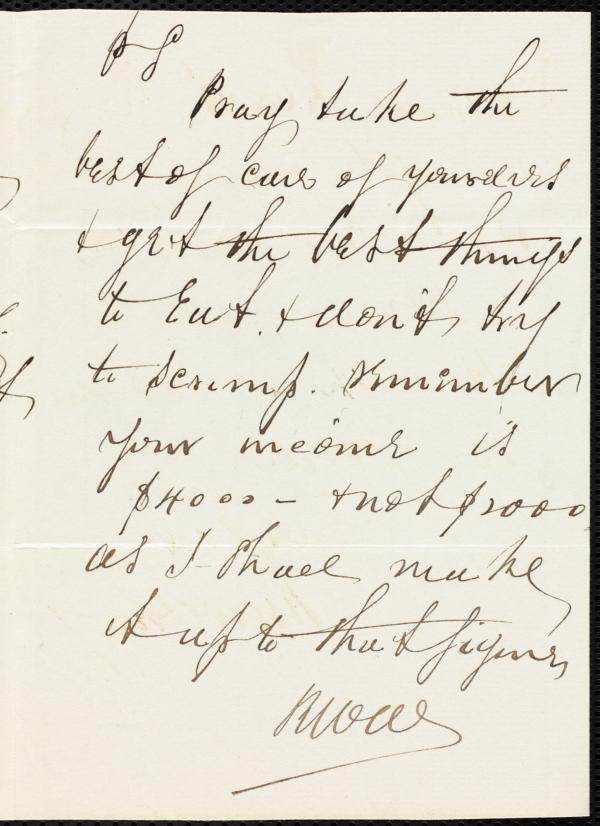 PS
Pray take the
best of care of yourselves
& get the best things
to Eat. & don't try
to scrimp. Remember
your income is
$4000 - & not $2000
as I shall make
it up to that figure